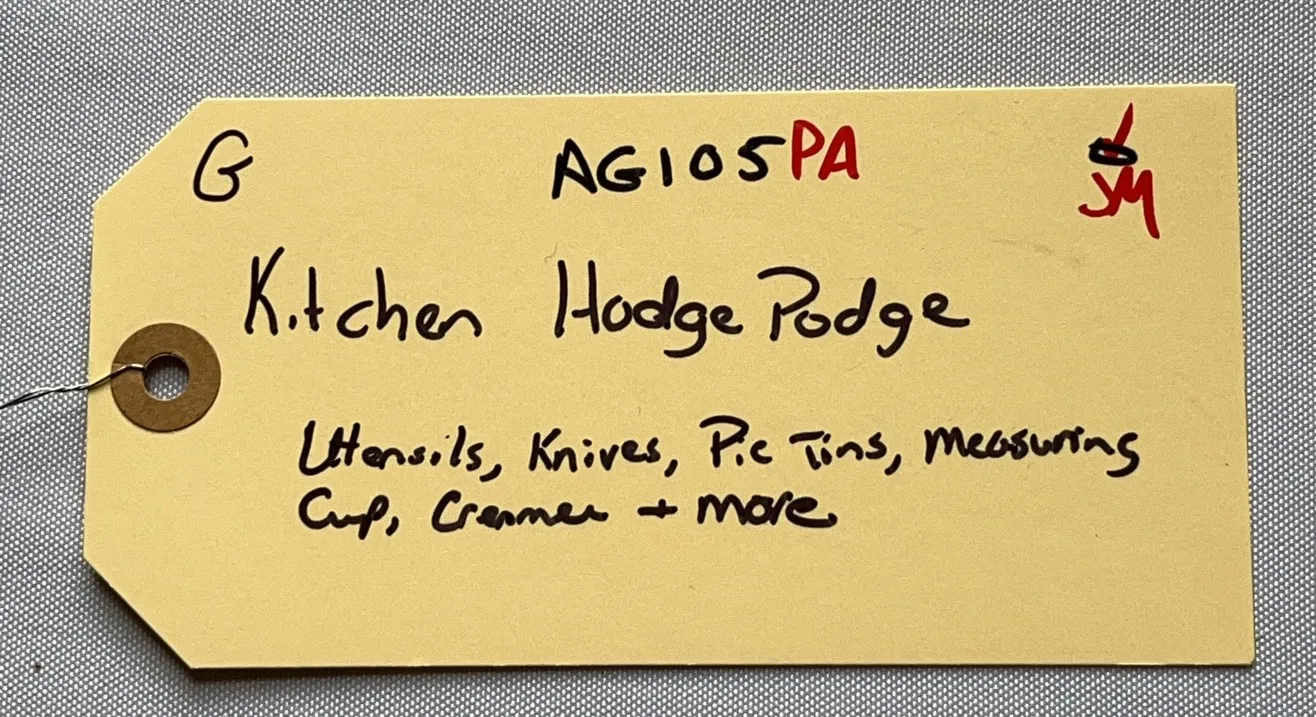 G AG105PA
JM
Kitchen Hodge Podge
Utensils, Knives, Pie Tins, Measuring
Cup, Creamer + more